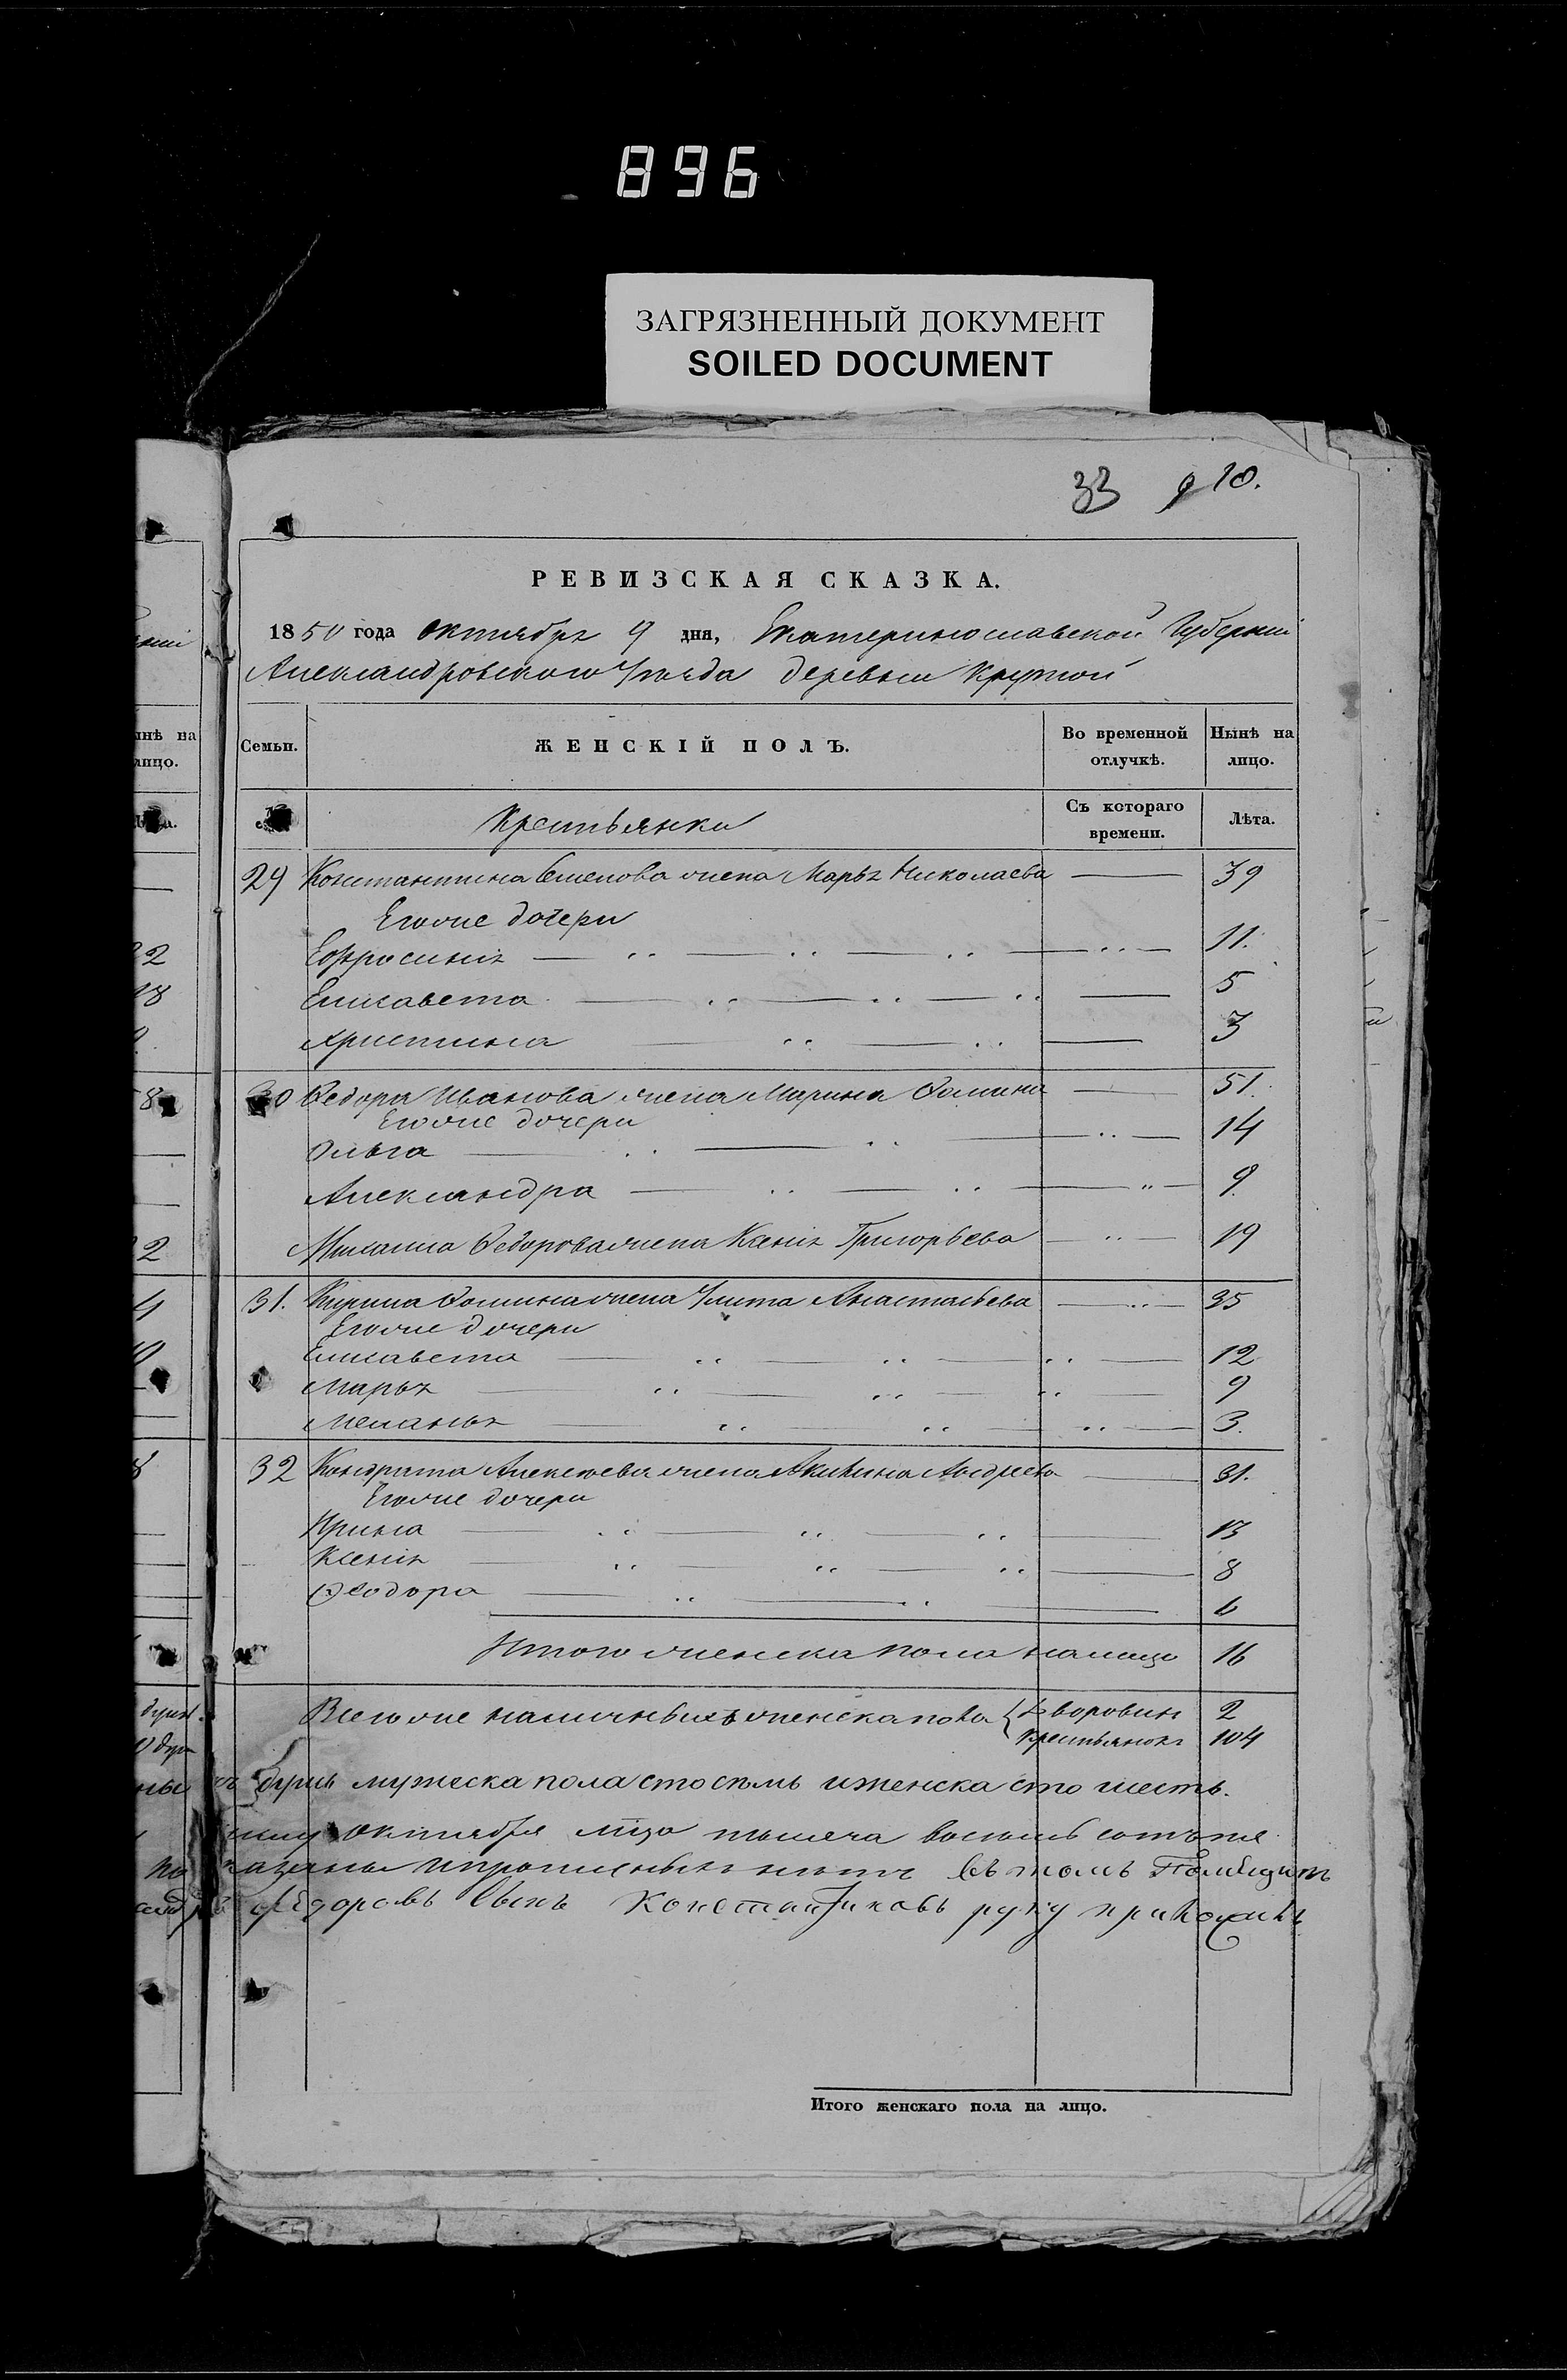 896
ЗАГРЯЗНЕННЫЙ ДОКУМЕНТ
SOILED DOCUMENT
33 910.
РЕВИЗСКАЯ СКАЗКА.
1850 года Октября 9 дня, Екатеринославской Губернии
Александровского Уезда деревни Крутой
Семьи. ЖЕНСКІЙ ПОЛЪ. Во временной отлучкѣ. Нынѣ на лицо.
Крестьянки Съ котораго времени. Лѣта.
29 Константина Семенова жена Марья Николаева 39
Его же дочери
Ефросинія 11.
Елисавета 5
Христина 3
30 Федора Иванова жена Марина Фомина 51.
Его же дочери
Ольга 14
Александра 9
Михаила Федорова жена Ксенія Григорьева 19
31. Кирила Фомина жена Улита Анастасьева 35
Его же дочери
Елисавета 12
Марья 9
Меланья 3.
32 Кондрата Алексеева жена Акилина Андреева 31.
Его же дочери
Ирина 13
Ксенія 8
Феодора 6
Итого женска пола налицо 16
Всего же наличныхъ женска пола Дворовых 2
Крестьянокъ 104
душъ мужеска пола сто семь и женска сто шесть.
Октября тысяча восемь сотъ
въ томъ
Федоровъ Сынъ Константиновъ руку приложилъ
Итого женскаго пола на лицо.